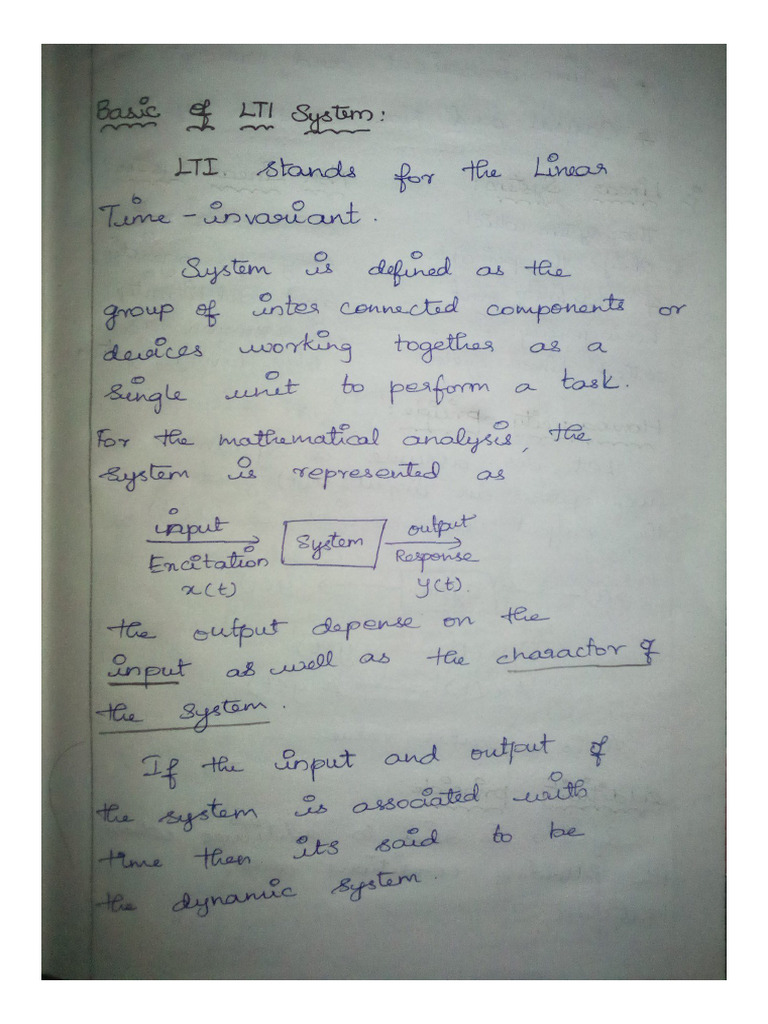 Basic of LTI System:
LTI. stands for the Linear
Time-invariant.
System is defined as the
group of inter connected components or
devices working together as a
single unit to perform a task.
For the mathematical analysis, the
system is represented as
input System output
Encitation Response
x(t) y(t).
the output depense on the
input as well as the charactor of
the system.
If the input and output of
the system is associated with
time then its said to be
the dynamic system.